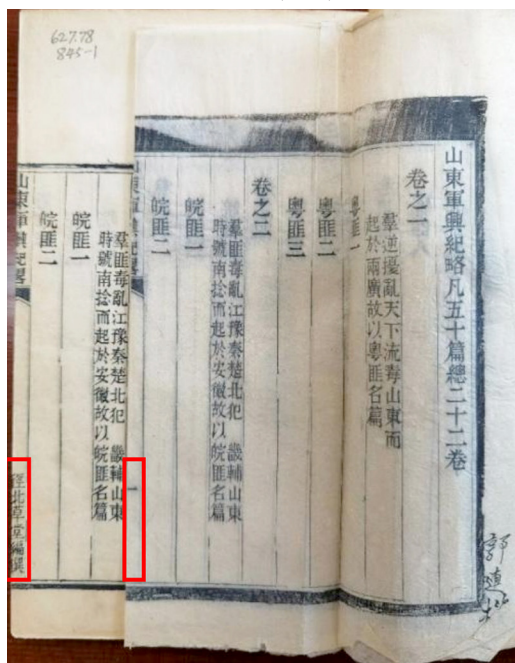 627.78
845-1
山東軍興紀略凡五十篇總二十二卷
卷之一
羣逆擾亂天下流毒山東而
起於兩廣故以粵匪名篇
粵匪一
粵匪二
粵匪三
卷之二
羣匪毒亂江豫秦楚北犯 畿輔山東
時號南捻而起於安徽故以皖匪名篇
皖匪一
皖匪二
山東軍興紀畧
一
羣匪毒亂江豫秦楚北犯 畿輔山東
時號南捻而起於安徽故以皖匪名篇
皖匪一
皖匪二
山東軍興紀畧
北草堂編輯